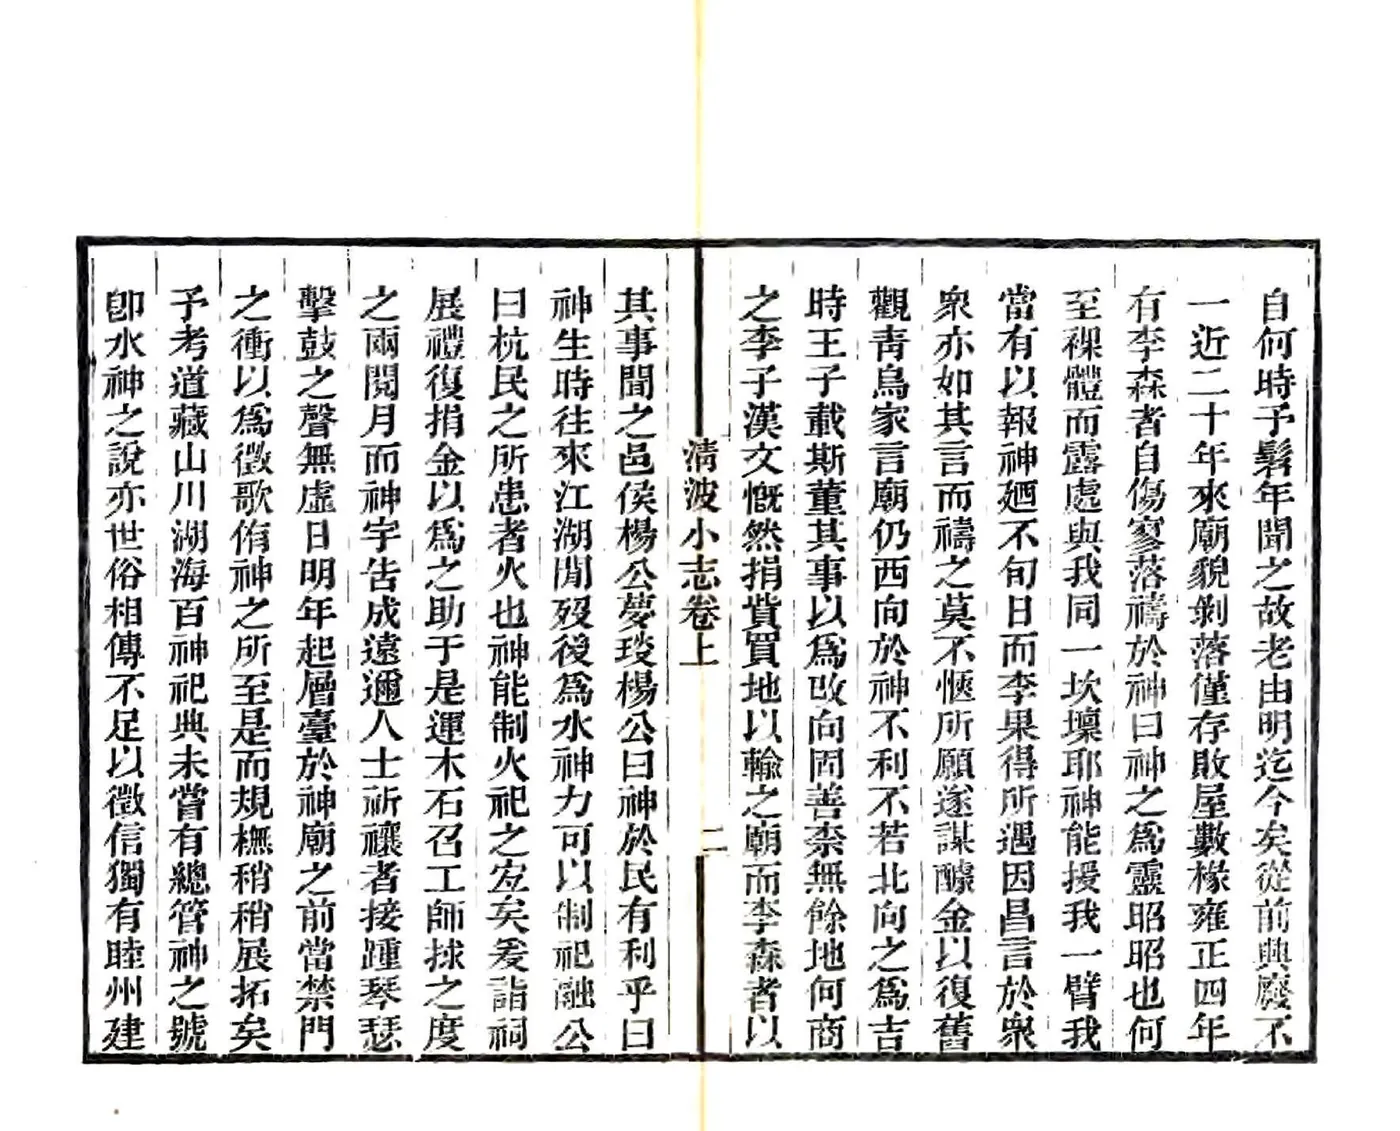 自何時予髫年聞之故老由明迄今矣從前興廢不
一近二十年來廟貌剝落僅存敗屋數椽雍正四年
有李森者自傷寥落禱於神曰神之爲靈昭昭也何
至裸體而露處與我同一坎壈耶神能援我一臂我
當有以報神廼不旬日而李果得所遇因昌言於衆
衆亦如其言而禱之莫不愜所願遂謀醵金以復舊
觀青烏家言廟仍西向於神不利不若北向之爲吉
時王子載斯董其事以爲改向固善柰無餘地何商
之李子漢文慨然捐貲買地以輸之廟而李森者以
清波小志卷上
二
其事聞之邑侯楊公夢琰楊公曰神於民有利乎曰
神生時往來江湖閒歿後爲水神力可以制祀融公
曰杭民之所患者火也神能制火祀之宐矣爰詣祠
展禮復捐金以爲之助于是運木石召工師捄之度
之兩閱月而神宇告成遠邇人士祈禳者接踵琴瑟
擊鼓之聲無虛日明年起層臺於神廟之前當禁門
之衝以爲徵歌侑神之所至是而規橅稍稍展拓矣
予考道藏山川湖海百神祀典未嘗有總管神之號
卽水神之說亦世俗相傳不足以徵信獨有睦州建